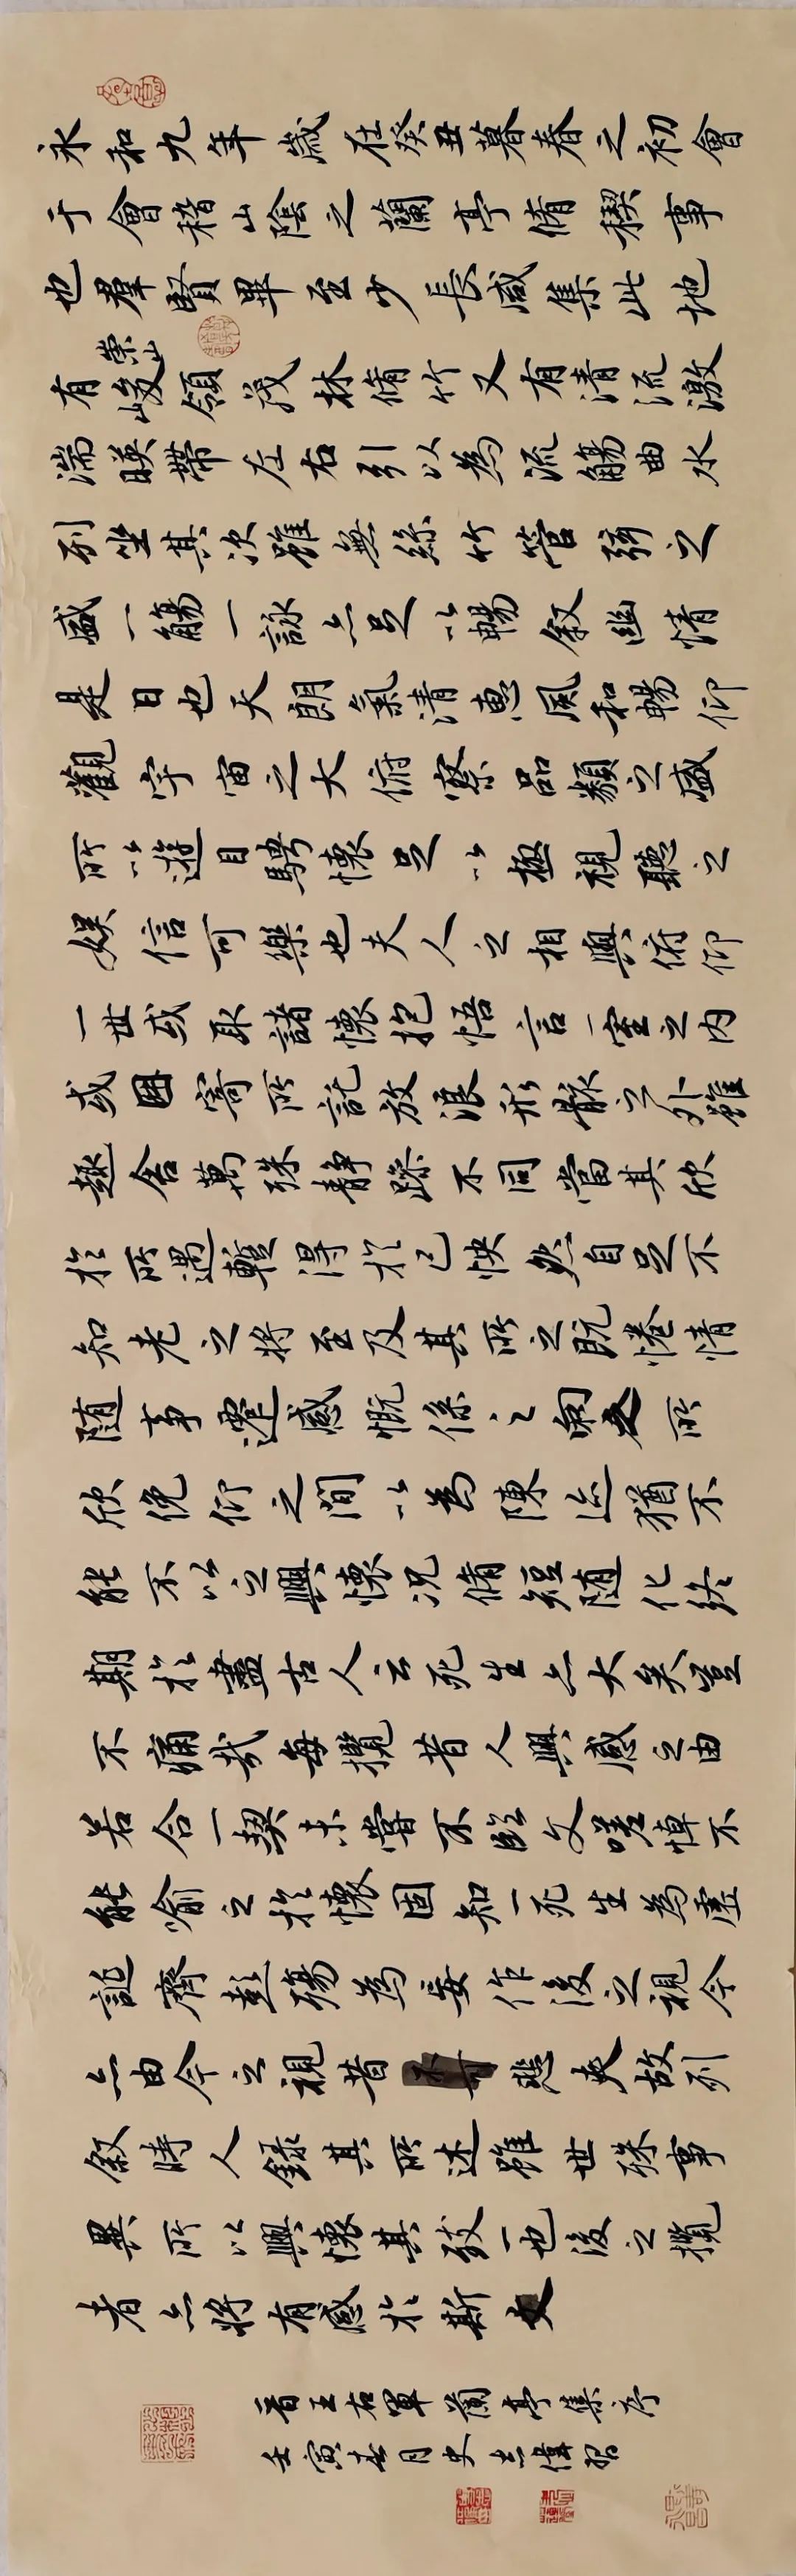 永和九年歲在癸丑暮春之初會
于會稽山陰之蘭亭脩稧事
也群賢畢至少長咸集此地
有崇山峻領茂林脩竹又有清流激
湍暎帶左右引以為流觴曲水
列坐其次雖無絲竹管弦之
盛一觴一詠亦足以暢敘幽情
是日也天朗氣清惠風和暢仰
觀宇宙之大俯察品類之盛
所以遊目騁懷足以極視聽之
娛信可樂也夫人之相與俯仰
一世或取諸懷抱悟言一室之內
或因寄所託放浪形骸之外雖
趣舍萬殊靜躁不同當其欣
於所遇蹔得於己快然自足不
知老之將至及其所之既惓情
隨事遷感慨係之矣向之所
欣俛仰之間以為陳迹猶不
能不以之興懷況脩短隨化終
期於盡古人云死生亦大矣豈
不痛哉每攬昔人興感之由
若合一契未嘗不臨文嗟悼不
能喻之於懷固知一死生為虛
誕齊彭殤為妄作後之視今
亦由今之視昔悲夫故列
敘時人錄其所述雖世殊事
異所以興懷其致一也後之攬
者亦將有感於斯文
晉王右軍蘭亭集序
壬寅春月史志偉